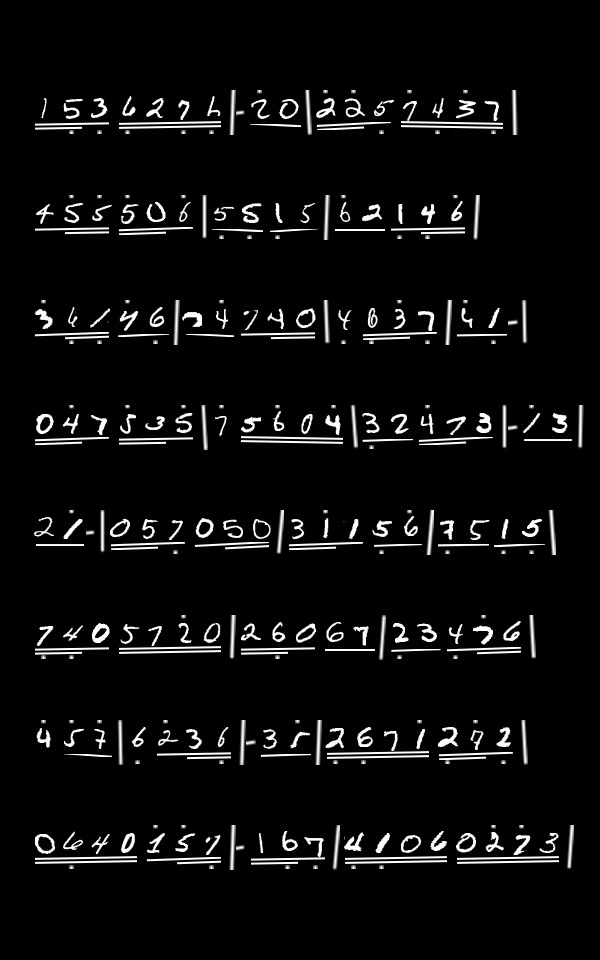 1536276|-20|2257437|
455506|5515|62146|
36146|74740|4637|61-|
047535|75604|32473|-13|
21-|057050|31156|7515|
7405720|26067|23476|
457|6236|-35|2671272|
0640157|-167|41060273|